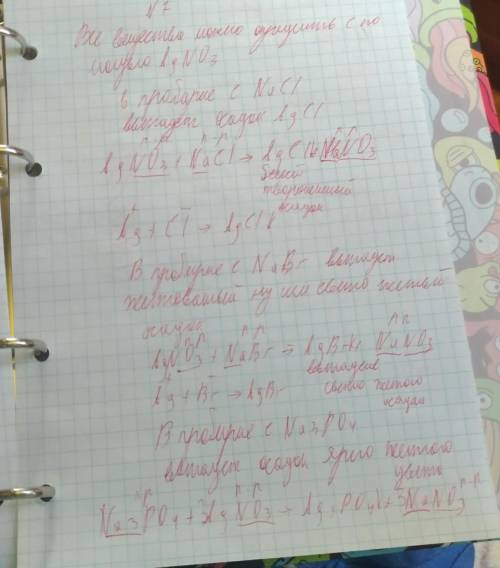 № 7
Все вещества можно определить с по
мощью AgNO3
в пробирке с NaCl
выпадет осадок AgCl
AgNO3 + NaCl → AgCl↓ + NaNO3
белый
творожистый
осадок
Ag + Cl → AgCl↓
В пробирке с NaBr выпадет
желтоватый ну или светло желтый
осадок
AgNO3 + NaBr → AgBr↓ + NaNO3
выпадение
светло желтого
осадка
Ag + Br → AgBr
В пробирке с Na3PO4
выпадет осадок ярко желтого
цвета
Na3PO4 + 3AgNO3 → Ag3PO4↓ + 3NaNO3